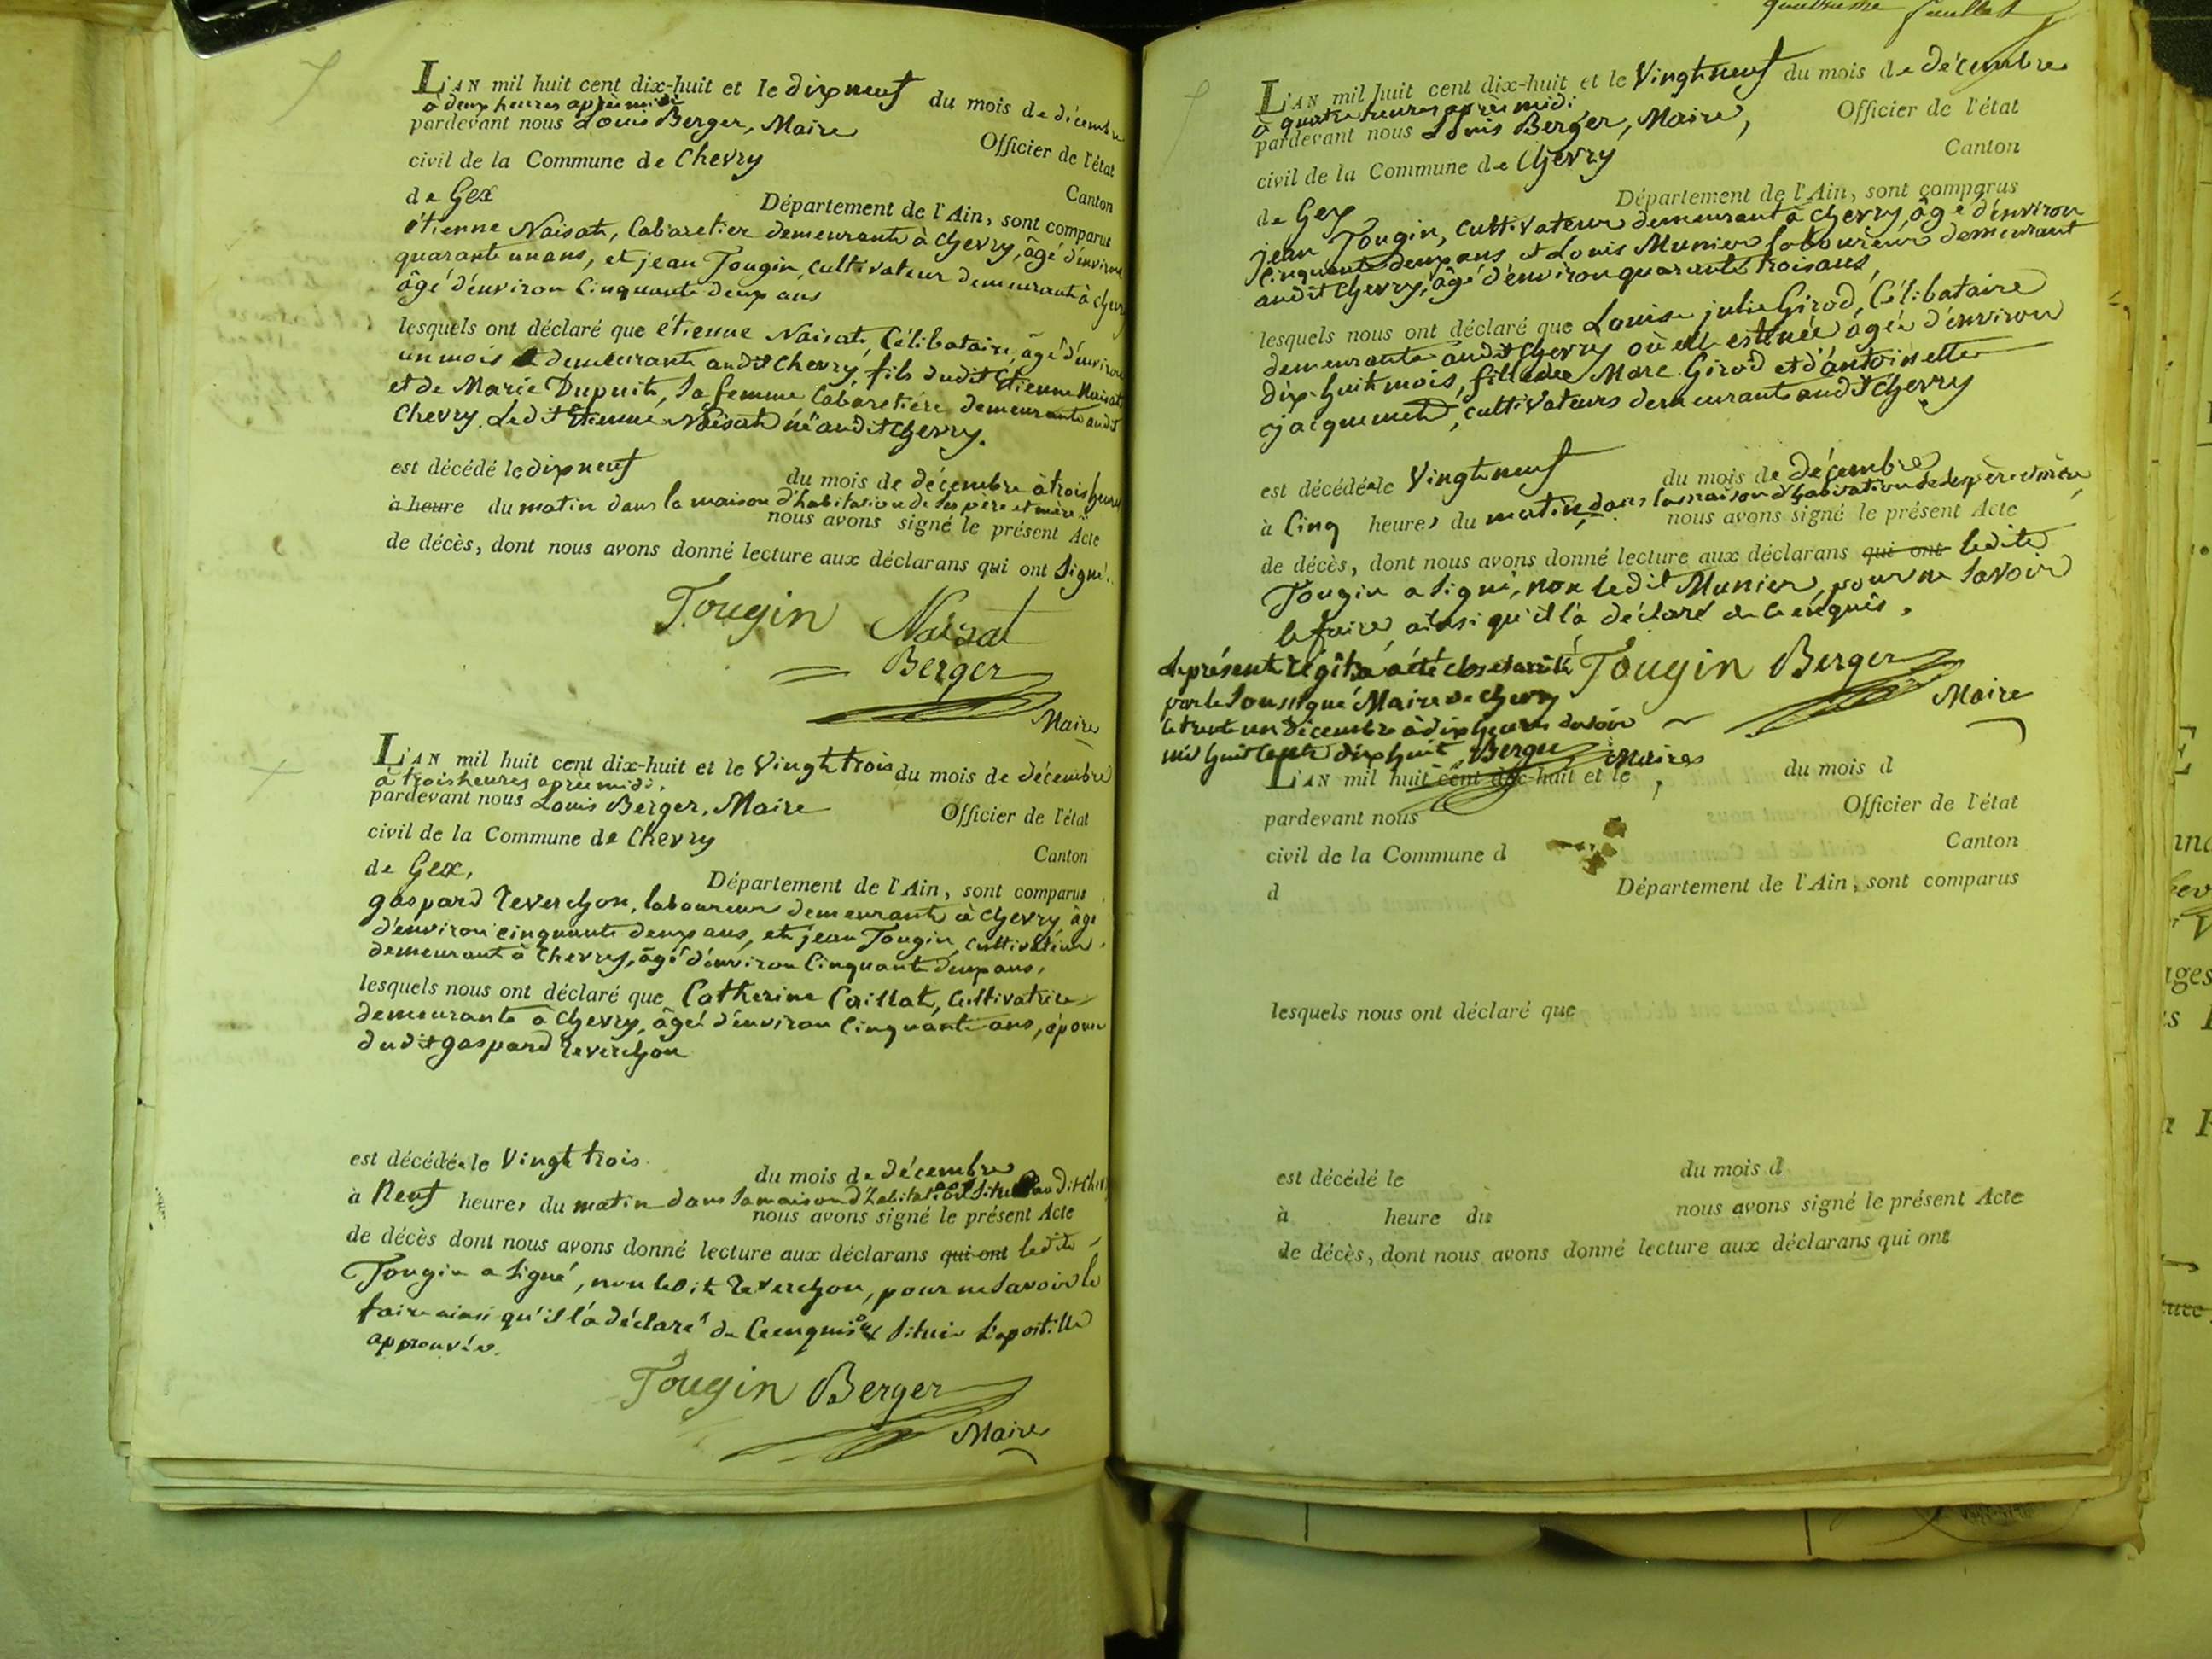 L'AN mil huit cent dix-huit et le dix neuf du mois de décembre
à deux heures après midi
pardevant nous Louis Berger, Maire Officier de l'état
civil de la Commune de Chevry Canton
de Gex Département de l'Ain, sont comparus
étienne Naisat, Cabaretier demeurant à Chevry, âgé d'environ
quarante un ans, et jean Tougin, cultivateur demeurant à Chevry
âgé d'environ Cinquante deux ans
lesquels ont déclaré que étienne Naisat, Célibataire, âgé d'environ
un mois demeurant audit Chevry, fils dudit Etienne Naisat
et de Marie Dupuit, sa femme Cabaretière demeurante audit
Chevry. Ledit Etienne Naisat né audit Chevry.
est décédé le dix neuf du mois de décembre à trois heures
à heure du matin dans la maison d'habitation de ses père et mère
nous avons signé le présent Acte
de décès, dont nous avons donné lecture aux déclarans qui ont signé.
Tougin Naisat
Berger
Maire
L'AN mil huit cent dix-huit et le Vingt trois du mois de décembre
à trois heures après midi.
pardevant nous Louis Berger, Maire Officier de l'état
civil de la Commune de Chevry Canton
de Gex, Département de l'Ain, sont comparus
gaspard Reverchon, laboureur demeurant à Chevry, âgé
d'environ cinquante deux ans, et jean Tougin, cultivateur
demeurant à Chevry, âgé d'environ Cinquante deux ans,
lesquels nous ont déclaré que Catherine Caillat, Cultivatrice
demeurante à Chevry, âgée d'environ Cinquante ans, épouse
dudit gaspard Reverchon
est décédée le Vingt trois du mois de décembre
à Neuf heures du matin dans sa maison d'habitation située audit Chevry
nous avons signé le présent Acte
de décès dont nous avons donné lecture aux déclarans qui ont ledit
Tougin a signé, non ledit Reverchon, pour ne savoir le
faire ainsi qu'il l'a déclaré de ce enquis située L'apostille
approuvée.
Tougin Berger
Maire
feuillet
L'AN mil huit cent dix-huit et le Vingt neuf du mois de décembre
à quatre heures après midi
pardevant nous Louis Berger, Maire, Officier de l'état
civil de la Commune de Chevry Canton
de Gex Département de l'Ain, sont comparus
jean Tougin, cultivateur demeurant à Chevry, âgé d'environ
Cinquante deux ans, et Louis Munier laboureur demeurant
audit Chevry, âgé d'environ quarante trois ans,
lesquels nous ont déclaré que Louise julie Girod, Célibataire
demeurante audit Chevry où elle est née âgée d'environ
dix-huit mois, fille de Marc Girod et d'antoinette
jacquemet, cultivateurs demeurants audit Chevry
est décédée le Vingt neuf du mois de décembre
à Cinq heures du matin, dans la maison d'habitation de ses père et mère,
nous avons signé le présent Acte
de décès, dont nous avons donné lecture aux déclarans qui ont ledit
Tougin a signé, non ledit Munier, pour ne savoir
le faire ainsi qu'il l'a déclaré de ce enquis.
Tougin Berger
Maire
Le présent a été clos et arrêté
par le soussigné Maire de Chevry
le trente un décembre à dix heures du soir
mil huit cent dix huit Berger Maire
L'AN mil huit cent dix-huit et le du mois d
pardevant nous Officier de l'état
civil de la Commune d Canton
d Département de l'Ain, sont comparus
lesquels nous ont déclaré que
est décédé le du mois d
à heure du nous avons signé le présent Acte
de décès, dont nous avons donné lecture aux déclarans qui ont